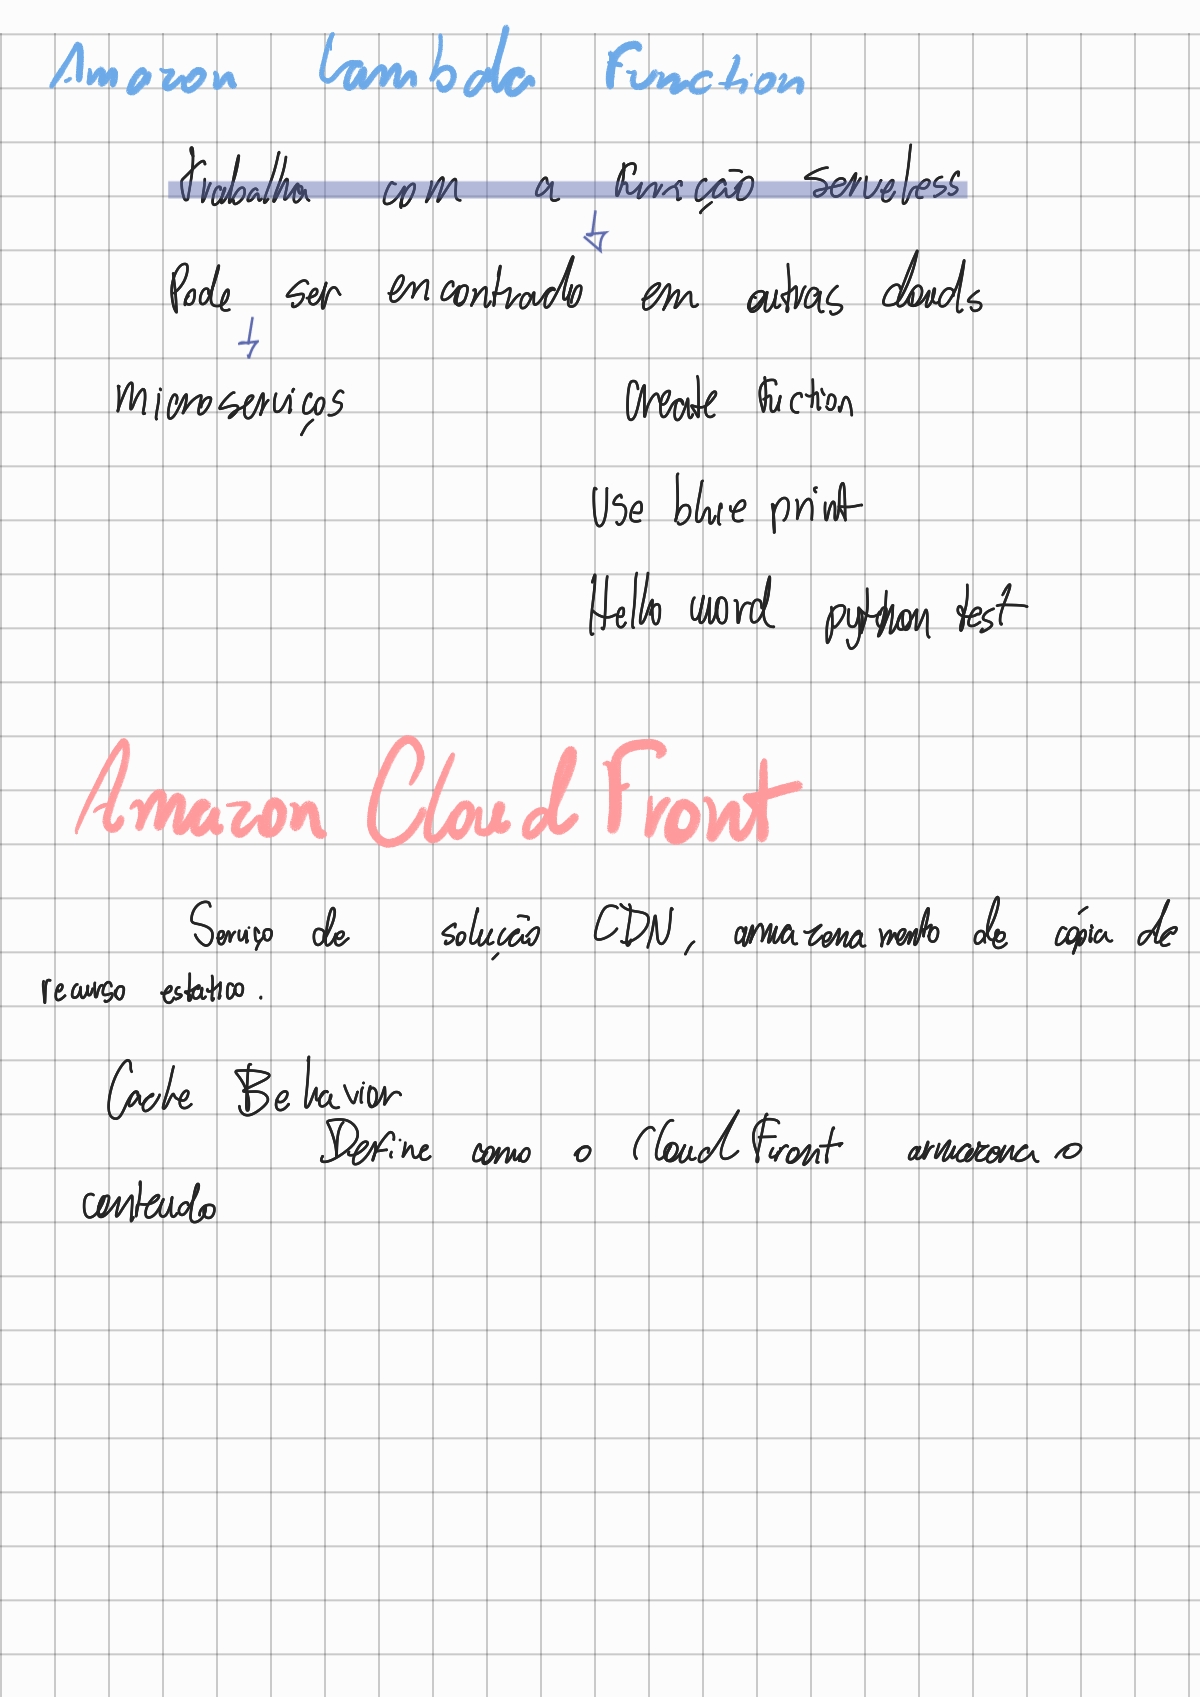 Amazon Lambda Function
Trabalha com a função serveless
Pode ser encontrado em outras clouds
Microserviços
Create fuction
Use blue print
Hello word python test
Amazon CloudFront
Serviço de solução CDN, armazenamento de cópia de
recurso estatico.
Cache Behavior
Define como o CloudFront armazena o
conteudo